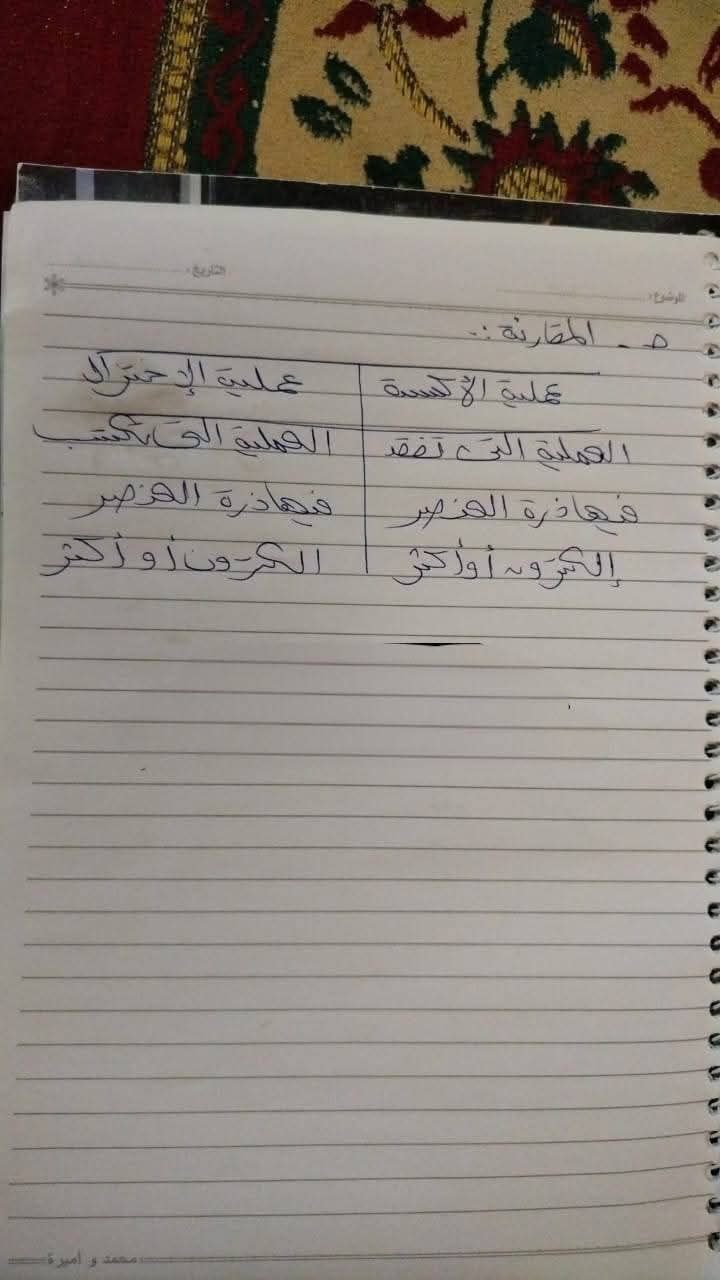 الموضوع:
التاريخ:
ه - المقارنة :-
عملية الأكسدة
عملية الإختزال
العملية التى تفقد
العملية التى تكتسب
فيها ذرة العنصر
فيها ذرة العنصر
إلكترون أو أكثر
الكترون أو أكثر
محمد و أميرة